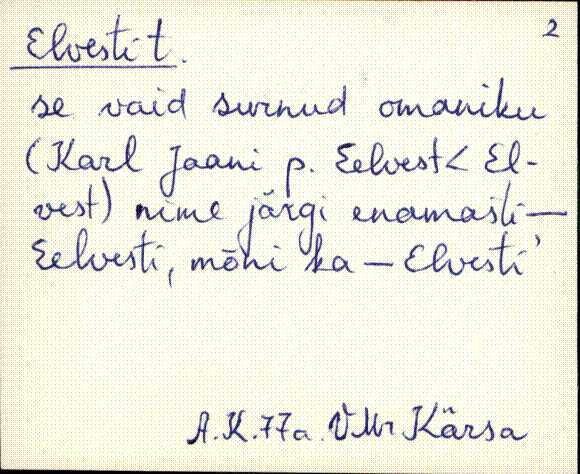 2
Elvesti t.
se vaid surnud omaniku
(Karl Jaani p. Eelvest < El-
vest) nime järgi enamasti —
Eelvesti, mõni ka — Elvesti’
A.K. 77a. VMr Kärsa